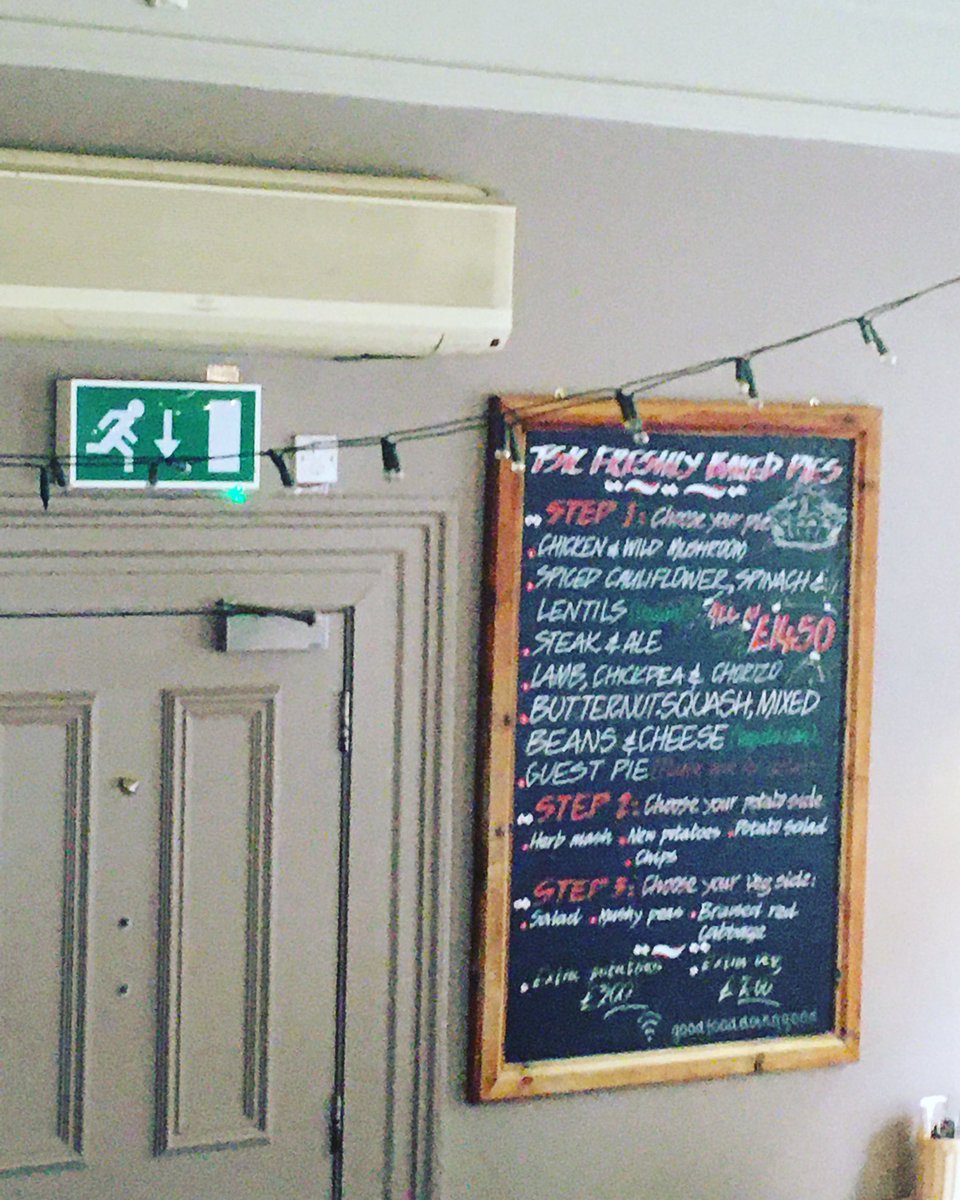 FRESHLY BAKED PIES
STEP 1: Choose your pie
CHICKEN & WILD MUSHROOM
SPICED CAULIFLOWER, SPINACH &
LENTILS
£14.50
STEAK & ALE
LAMB, CHICKPEA & CHORIZO
BUTTERNUT SQUASH, MIXED
BEANS & CHEESE
GUEST PIE
STEP 2: Choose your potato side
Herb mash New potatoes Potato salad
Chips
STEP 3: Choose your veg side:
Salad Mushy peas Braised red
Cabbage
Extra potatoes Extra veg
£3.00
goodfooddoinggood